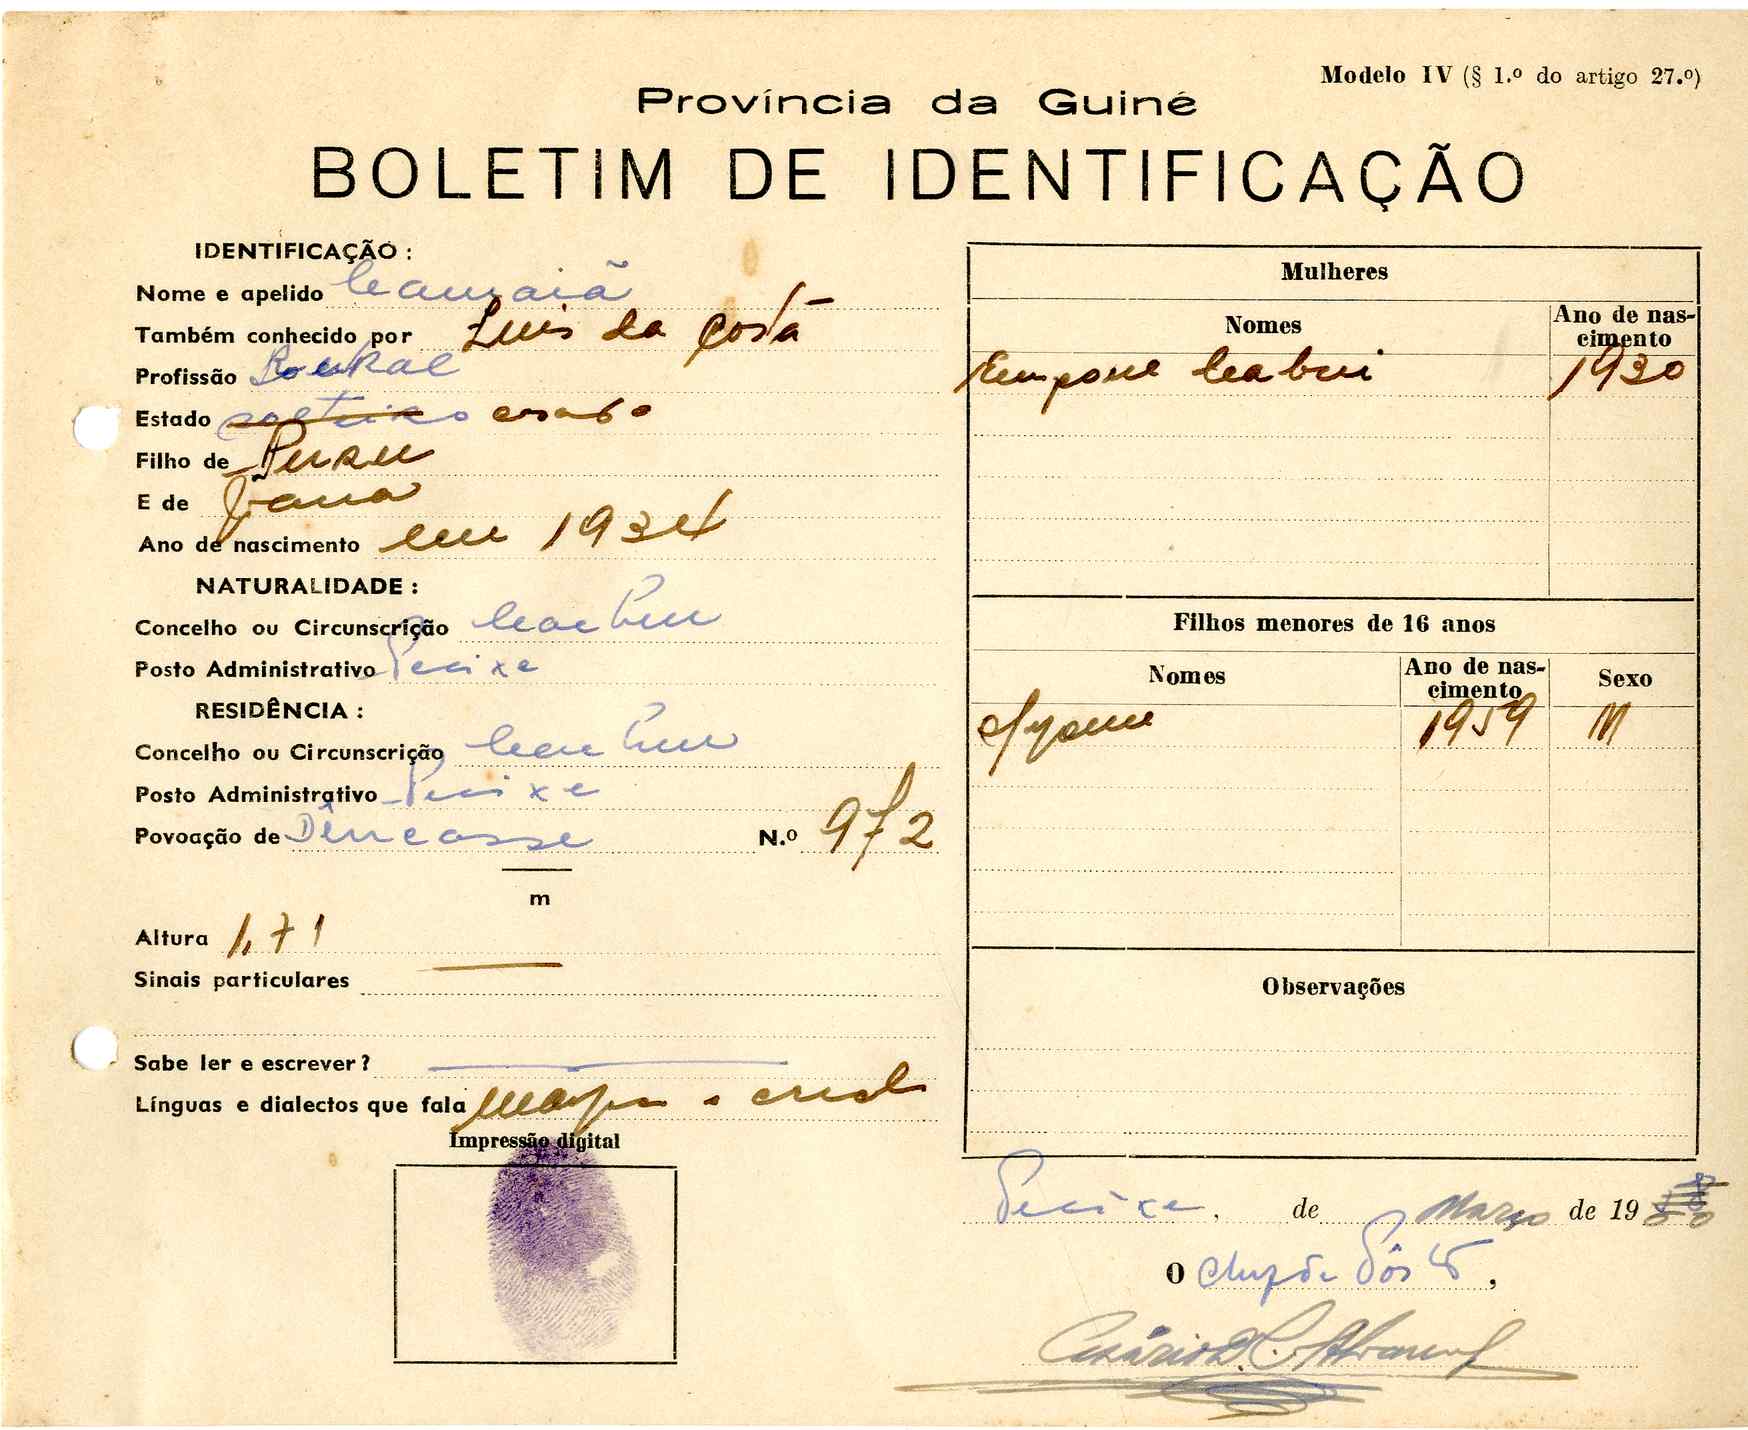 Modelo IV (§ 1.º do artigo 27.º)
Província da Guiné
BOLETIM DE IDENTIFICAÇÃO
IDENTIFICAÇÃO :
Nome e apelido
Também conhecido por Luis da Costa
Profissão
Estado solteiro casado
Filho de
E de Joana
Ano de nascimento em 1934
NATURALIDADE :
Concelho ou Circunscrição Cacheu
Posto Administrativo Pecixe
RESIDÊNCIA :
Concelho ou Circunscrição Cacheu
Posto Administrativo Pecixe
Povoação de N.º 972
m
Altura 1,71
Sinais particulares —
Sabe ler e escrever? —
Línguas e dialectos que fala
Impressão digital
Mulheres
Nomes Ano de nas-
cimento
1930
Filhos menores de 16 anos
Nomes Ano de nas-
cimento Sexo
1959 M
Observações
Pecixe, de Março de 19
O Chefe de Pôsto,